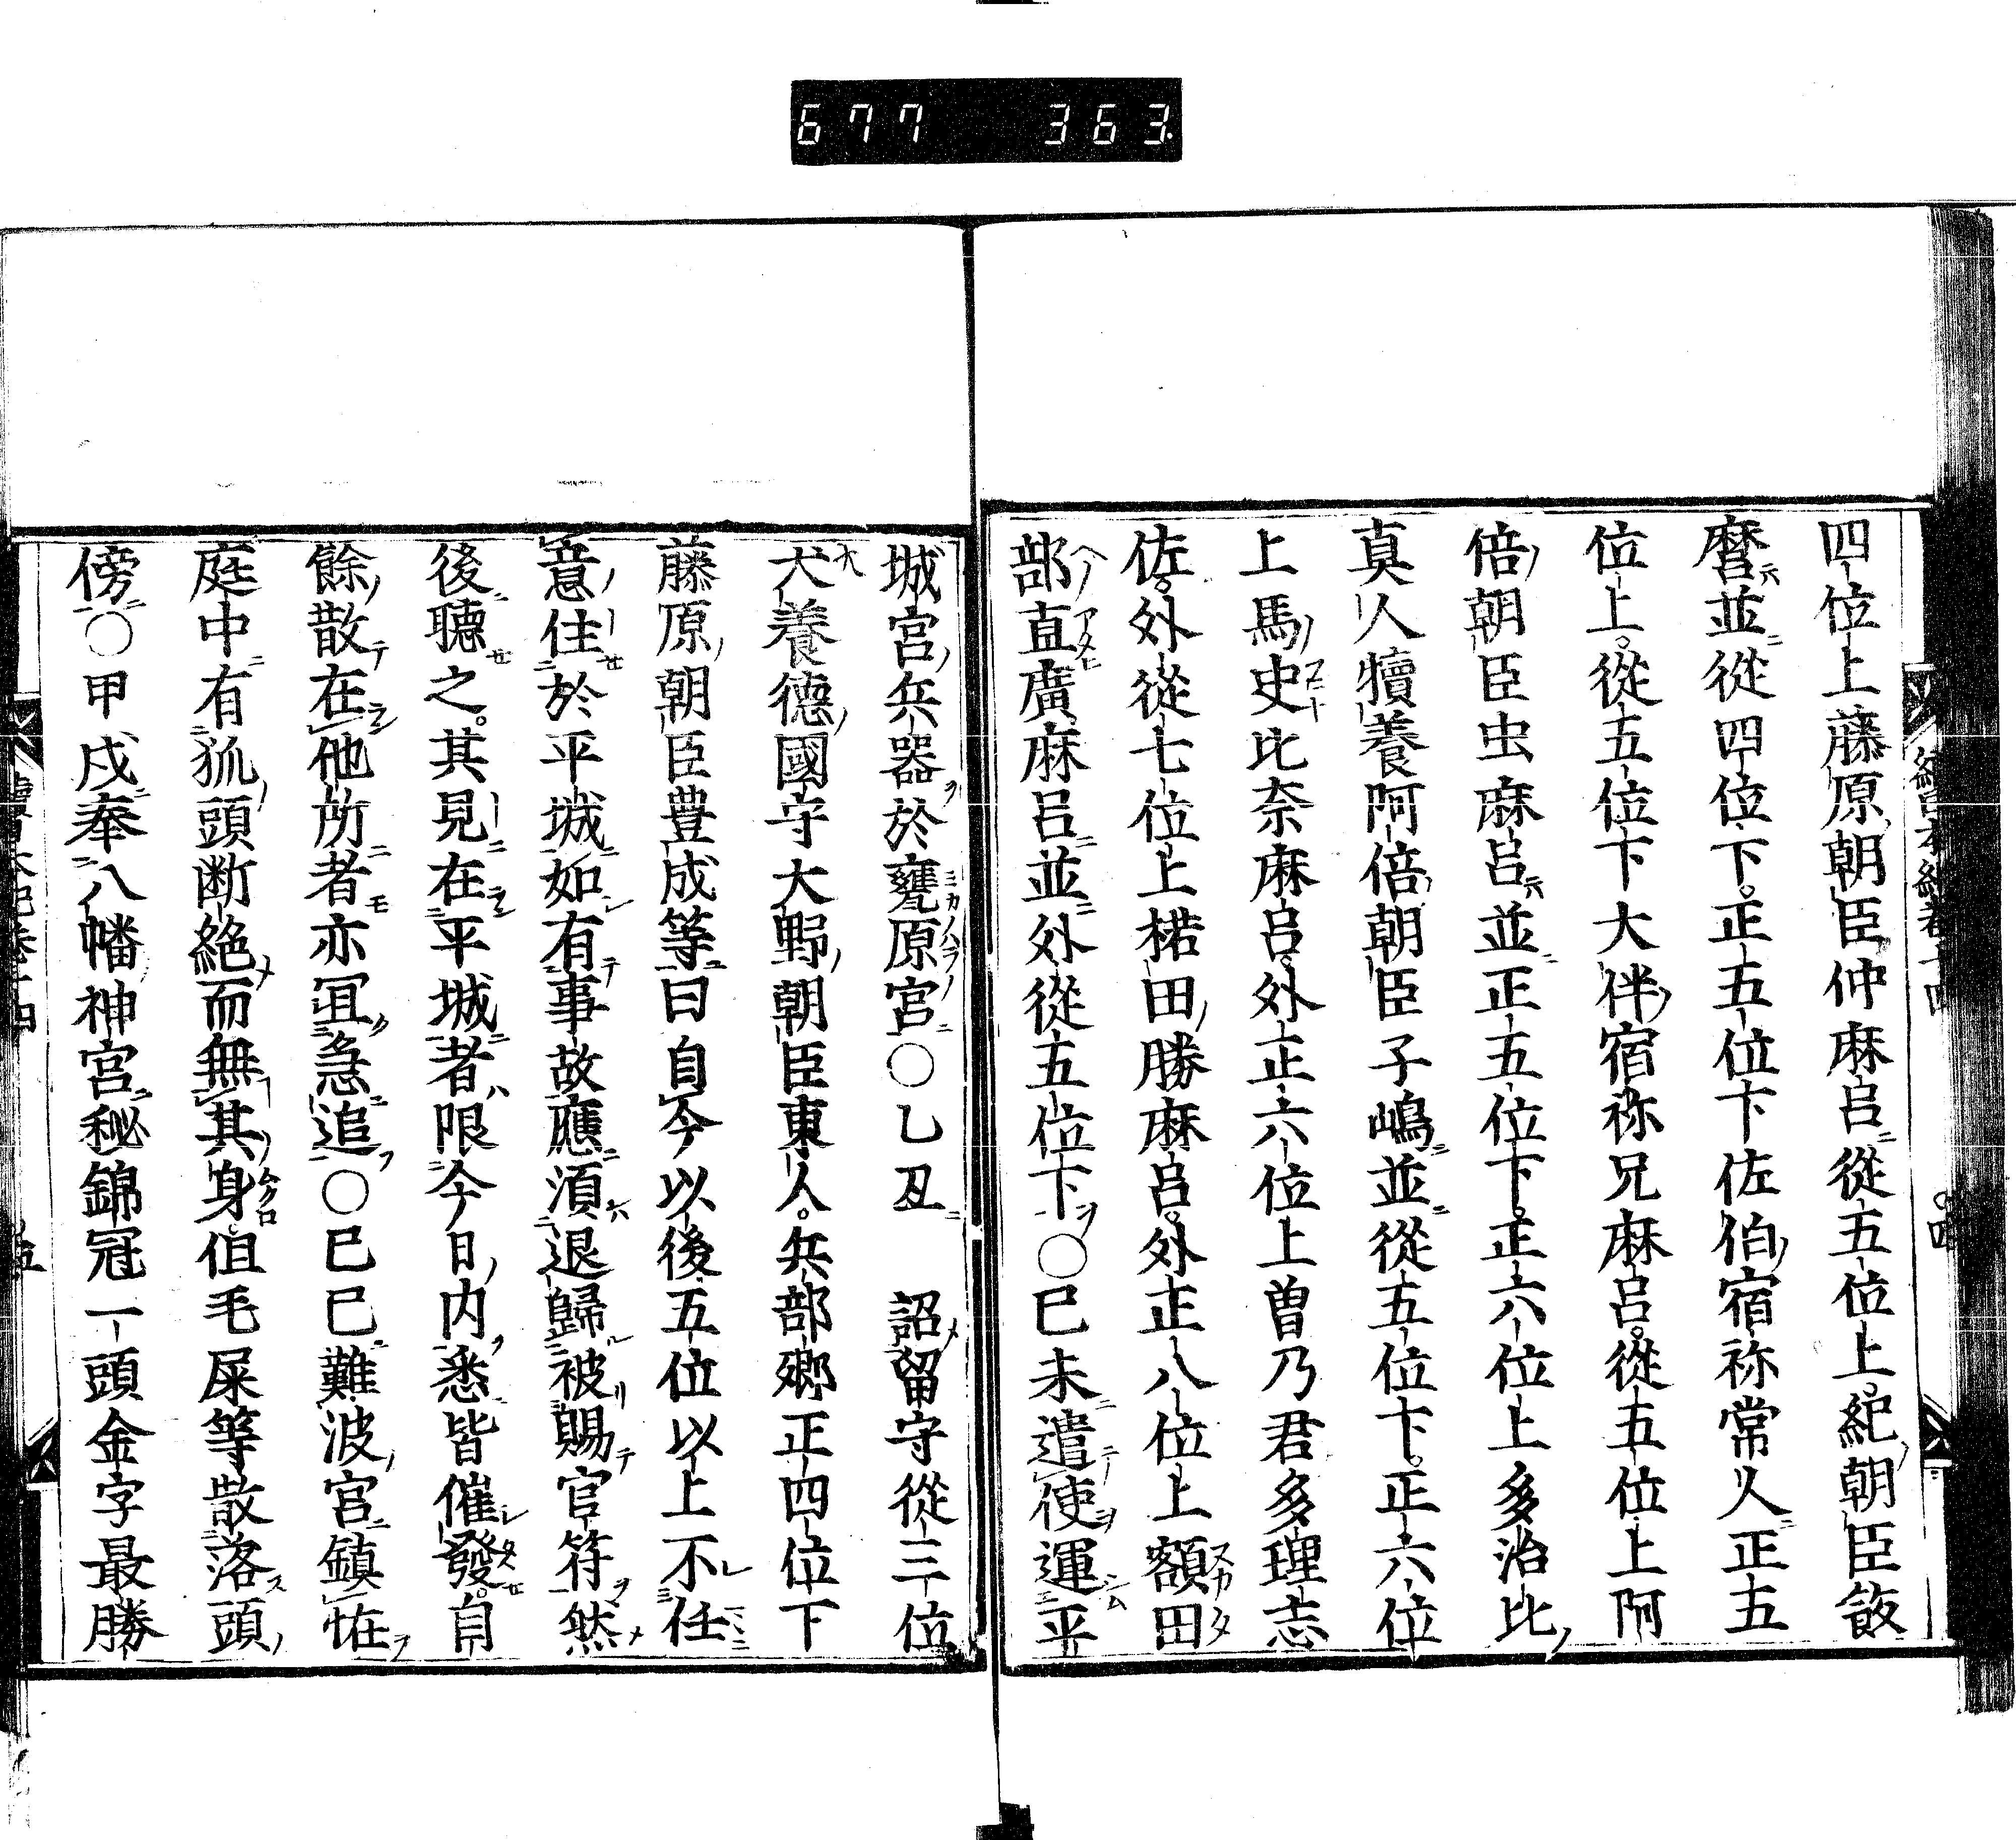 677 363
四位上藤原朝臣仲麻呂從五位上紀朝臣飯
麿並從四位下正五位下佐伯宿祢常人正五
位上從五位下大伴宿祢兄麻呂從五位上阿
倍朝臣虫麻呂並正五位下正六位上多治比
真人犢養阿倍朝臣子嶋並從五位下正六位
上馬史比奈麻呂外正六位上曽乃君多理志
佐外從七位上楉田勝麻呂外正八位上額田
部直廣麻呂並外從五位下〇已未遣使運平
城宮兵器於甕原宮〇乙丑 詔留守從三位
大養德國守大野朝臣東人兵部卿正四位下
藤原朝臣豊成等曰自今以後五位以上不任
意住於平城如有事故應須退歸被賜官符然
後聴之其見在平城者限今日内悉皆催發自
餘散在他所者亦冝急追〇已巳難波宮鎮恠
庭中有狐頭断絶而無其身但毛屎等散落頭
傍〇甲戌奉八幡神宮秘錦冠一頭金字最勝